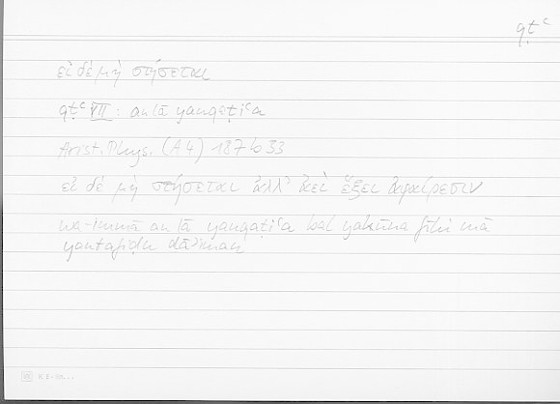 qṭʿ
εἰ δὲ μὴ στήσεται
qṭʿ VII: an lā yanqaṭiʿa
Arist. Phys. (A 4) 187 b 33
εἰ δὲ μὴ στήσεται ἀλλ' ἀεὶ ἕξει ἀφαίρεσιν
wa-immā an lā yanqaṭiʿa bal yakūna fīhi mā
yantafiḍu dāʾiman